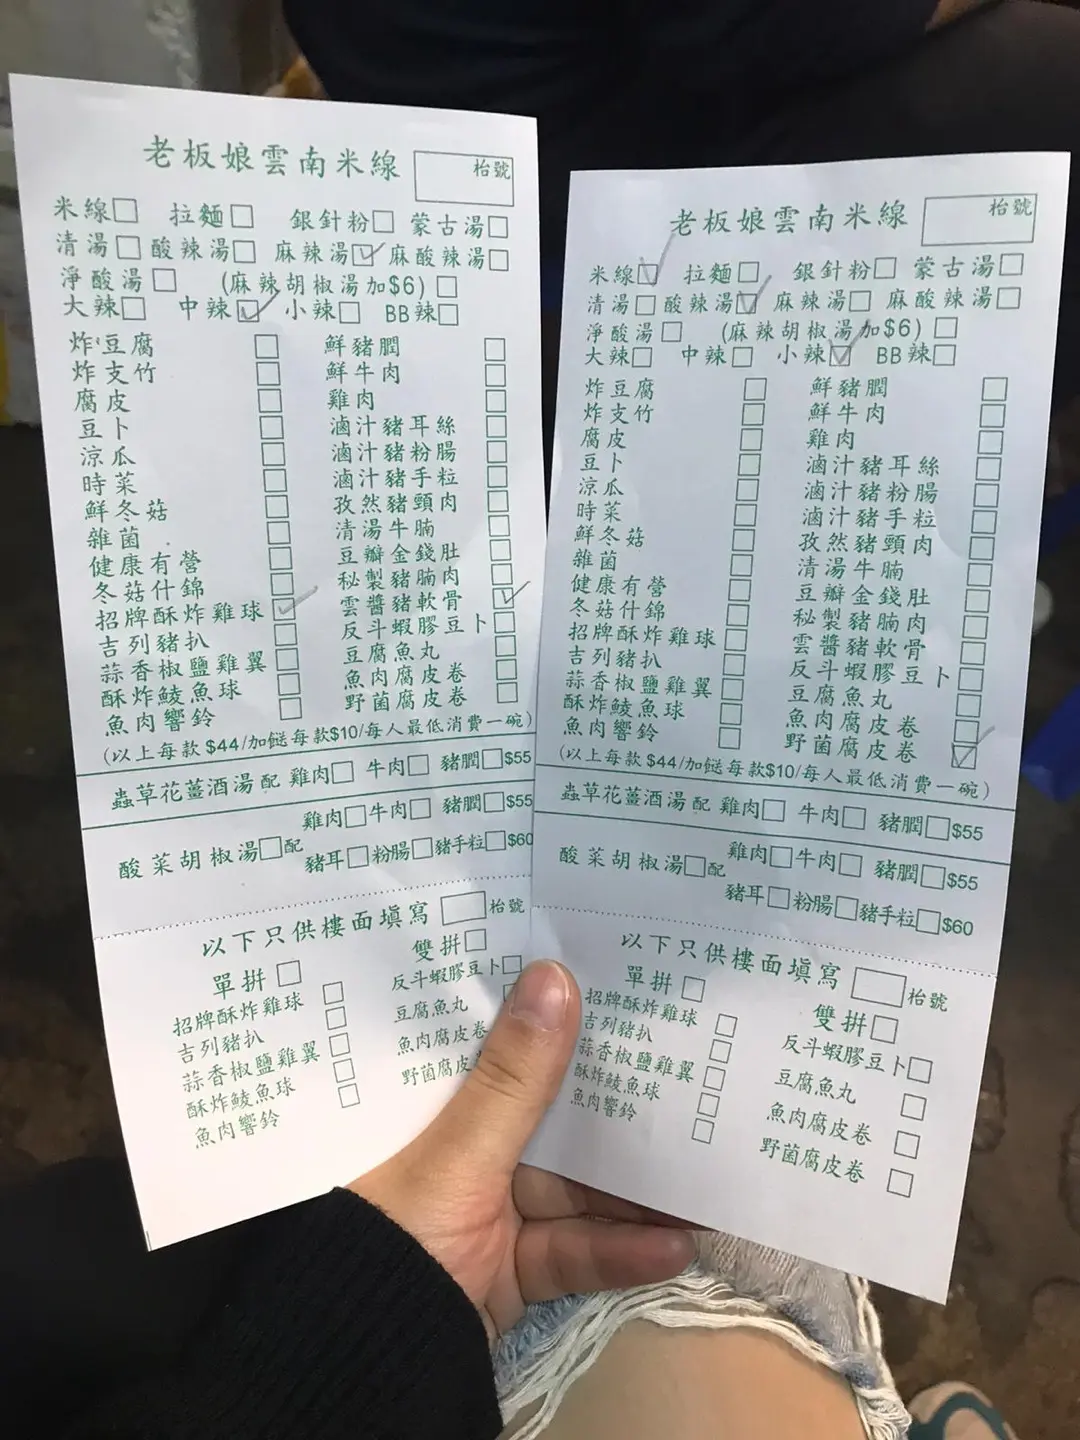 老板娘雲南米線
枱號
米線 拉麵 銀針粉 蒙古湯
清湯 酸辣湯 麻辣湯 麻酸辣湯
淨酸湯 (麻辣胡椒湯加$6)
大辣 中辣 小辣 BB辣
炸豆腐 鮮豬膶
炸支竹 鮮牛肉
腐皮 雞肉
豆卜 滷汁豬耳絲
涼瓜 滷汁豬粉腸
時菜 滷汁豬手粒
鮮冬菇 孜然豬頸肉
雜菌 清湯牛腩
健康有營 豆瓣金錢肚
冬菇什錦 秘製豬腩肉
招牌酥炸雞球 雲醬豬軟骨
吉列豬扒 反斗蝦膠豆卜
蒜香椒鹽雞翼 豆腐魚丸
酥炸鯪魚球 魚肉腐皮卷
魚肉響鈴 野菌腐皮卷
(以上每款$44/加餸每款$10/每人最低消費一碗)
蟲草花薑酒湯配 雞肉 牛肉 豬膶 $55
酸菜胡椒湯 配 雞肉 牛肉 豬膶 $55
豬耳 粉腸 豬手粒 $60
以下只供樓面填寫 枱號
單拼 雙拼
招牌酥炸雞球 反斗蝦膠豆卜
吉列豬扒 豆腐魚丸
蒜香椒鹽雞翼 魚肉腐皮卷
酥炸鯪魚球 野菌腐皮
魚肉響鈴
老板娘雲南米線
枱號
米線 拉麵 銀針粉 蒙古湯
清湯 酸辣湯 麻辣湯 麻酸辣湯
淨酸湯 (麻辣胡椒湯加$6)
大辣 中辣 小辣 BB辣
炸豆腐 鮮豬膶
炸支竹 鮮牛肉
腐皮 雞肉
豆卜 滷汁豬耳絲
涼瓜 滷汁豬粉腸
時菜 滷汁豬手粒
鮮冬菇 孜然豬頸肉
雜菌 清湯牛腩
健康有營 豆瓣金錢肚
冬菇什錦 秘製豬腩肉
招牌酥炸雞球 雲醬豬軟骨
吉列豬扒 反斗蝦膠豆卜
蒜香椒鹽雞翼 豆腐魚丸
酥炸鯪魚球 魚肉腐皮卷
魚肉響鈴 野菌腐皮卷
(以上每款$44/加餸每款$10/每人最低消費一碗)
蟲草花薑酒湯配 雞肉 牛肉 豬膶 $55
酸菜胡椒湯 配 雞肉 牛肉 豬膶 $55
豬耳 粉腸 豬手粒 $60
以下只供樓面填寫 枱號
單拼 雙拼
招牌酥炸雞球 反斗蝦膠豆卜
吉列豬扒 豆腐魚丸
蒜香椒鹽雞翼 魚肉腐皮卷
酥炸鯪魚球 野菌腐皮卷
魚肉響鈴